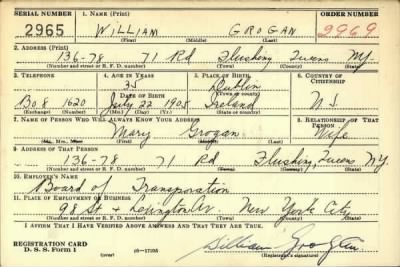 SERIAL NUMBER 1. NAME (Print) ORDER NUMBER
2965 WILLIAM GROGAN 9969
(First) (Middle) (Last)
2. ADDRESS (Print)
136-78 71 Rd Flushing Queens NY
(Number and street or R. F. D. number) (Town) (County) (State)
3. TELEPHONE 4. AGE IN YEARS 5. PLACE OF BIRTH 6. COUNTRY OF CITIZENSHIP
35 Dublin
DATE OF BIRTH (Town or county)
Bo.8 1620 July 22 1905 Ireland
(Exchange) (Number) (Mo.) (Day) (Yr.) (State or country)
7. NAME OF PERSON WHO WILL ALWAYS KNOW YOUR ADDRESS 8. RELATIONSHIP OF THAT PERSON
Mary Grogan Wife
(Mr., Mrs., Miss) (First) (Middle) (Last)
9. ADDRESS OF THAT PERSON
136-78 71 Rd Flushing, Queens NY.
(Number and street or R. F. D. number) (Town) (County) (State)
10. EMPLOYER'S NAME
Board of Transporation
11. PLACE OF EMPLOYMENT OR BUSINESS
98 St & Lexington Av. New York City
(Number and street or R. F. D. number) (Town) (County) (State)
I AFFIRM THAT I HAVE VERIFIED ABOVE ANSWERS AND THAT THEY ARE TRUE.
REGISTRATION CARD
D. S. S. Form 1 (over) 16-17105 William Grogan